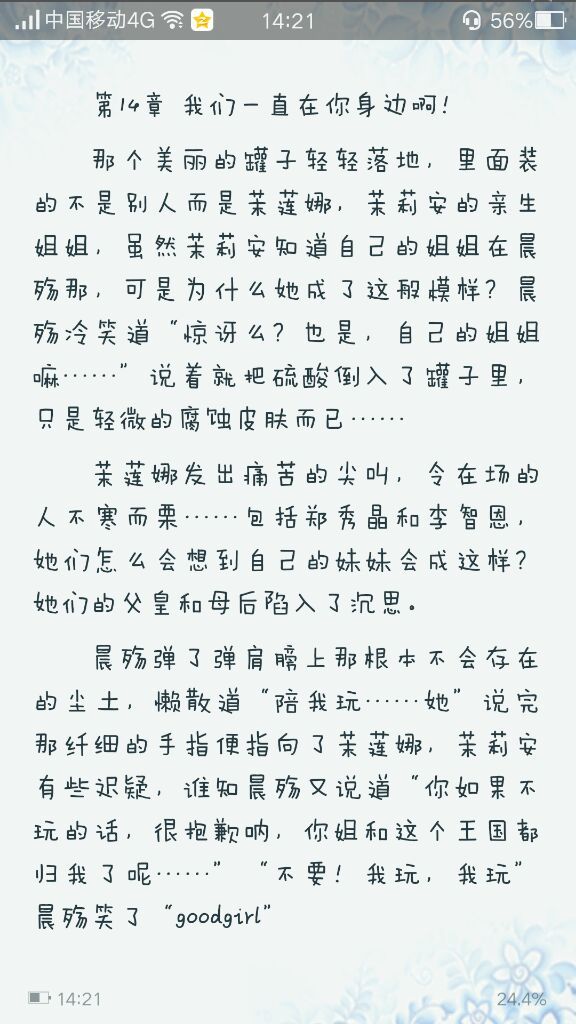 中国移动4G 14:21 56%
第14章 我们一直在你身边啊!
那个美丽的罐子轻轻落地，里面装
的不是别人而是茉莲娜，茉莉安的亲生
姐姐，虽然茉莉安知道自己的姐姐在晨
殇那，可是为什么她成了这般模样？晨
殇冷笑道“惊讶么？也是，自己的姐姐
嘛……”说着就把硫酸倒入了罐子里，
只是轻微的腐蚀皮肤而已……
茉莲娜发出痛苦的尖叫，令在场的
人不寒而栗……包括郑秀晶和李智恩，
她们怎么会想到自己的妹妹会成这样？
她们的父皇和母后陷入了沉思。
晨殇弹了弹肩膀上那根本不会存在
的尘土，懒散道“陪我玩……她”说完
那纤细的手指便指向了茉莲娜，茉莉安
有些迟疑，谁知晨殇又说道“你如果不
玩的话，很抱歉呐，你姐和这个王国都
归我了呢……”“不要！我玩，我玩”
晨殇笑了“goodgirl”
14:21 24.4%